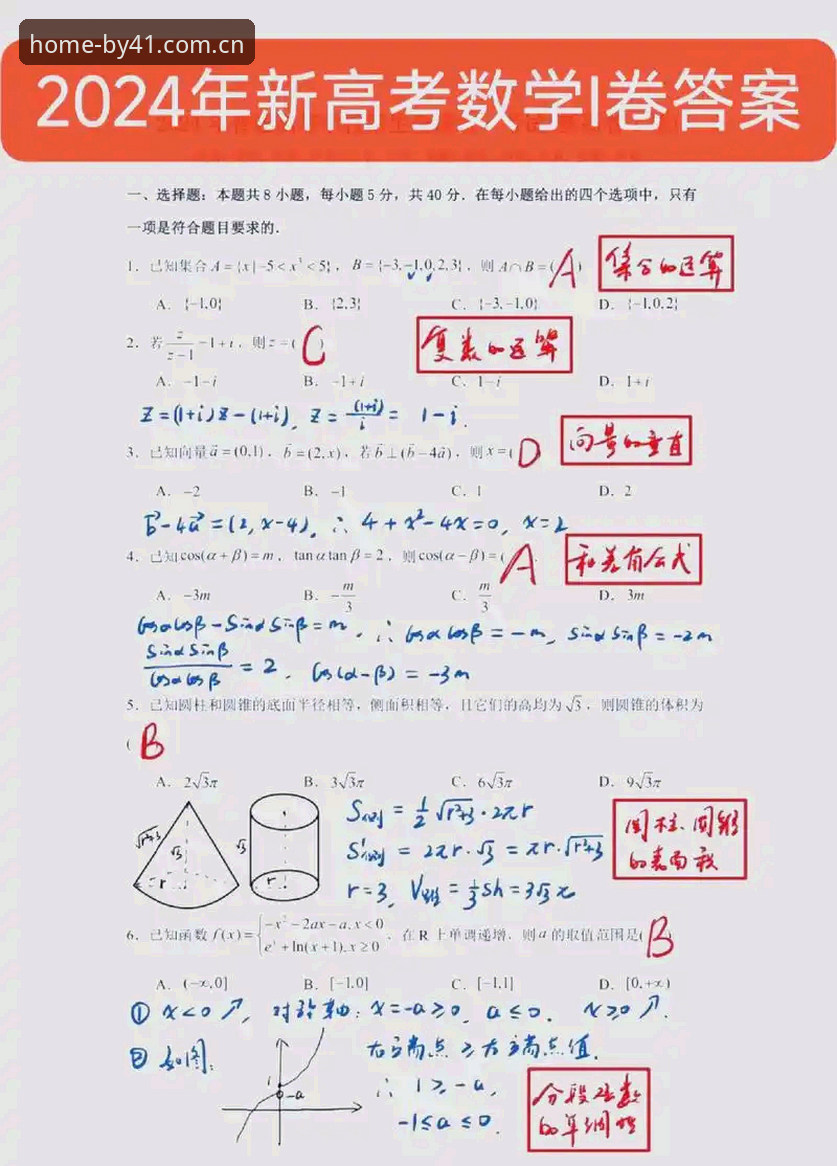 home-by41.com.cn
2024年新高考数学I卷答案
一、选择题：本题共8小题，每小题5分，共40分．在每小题给出的四个选项中，只有
一项是符合题目要求的．
1．已知集合A={x|-5<x³<5}，B={-3,-1,0,2,3}，则A∩B=(A) 集合的运算
A．{-1,0} B．{2,3} C．{-3,-1,0} D．{-1,0,2}
2．若z/(z-1)=1+i，则z=(C) 复数的运算
A．-1-i B．-1+i C．1-i D．1+i
Z=(1+i)Z-(1+i), Z=(1+i)/i= 1-i.
3．已知向量a⃗=(0,1)，b⃗=(2,x)，若b⃗⊥(b⃗-4a⃗)，则x=(D 向量的垂直
A．-2 B．-1 C．1 D．2
b⃗-4a⃗=(2,x-4), ∴4+x²-4x=0, x=2
4．已知cos(α+β)=m，tanαtanβ=2，则cos(α-β)=(A 和差角公式
A．-3m B．-m/3 C．m/3 D．3m
cosαcosβ-sinαsinβ=m, ∴cosαcosβ=-m, sinαsinβ=-2m
sinαsinβ/cosαcosβ=2, cos(α-β)=-3m
5．已知圆柱和圆锥的底面半径相等，侧面积相等，且它们的高均为√3，则圆锥的体积为
(B
A．2√3π B．3√3π C．6√3π D．9√3π
√r²+3 √3 r √3 r
S侧=1/2√r²+3·2πr
S'侧=2πr·√3=πr·√r²+3
r=3, V锥=1/3Sh=3√3π
圆柱、圆锥
的表面积
6．已知函数f(x)={-x²-2ax-a,x<0
e^x+ln(x+1),x≥0，在R上单调递增，则a的取值范围是(B)
A．(-∞,0] B．[-1,0] C．[-1,1] D．[0,+∞)
① x<0↗, 对称轴：x=-a≥0, a≤0. x≥0↗.
② 如图： 右端点≥左端点值.
1 -a
∴1≥-a,
-1≤a≤0.
分段函数
的单调性